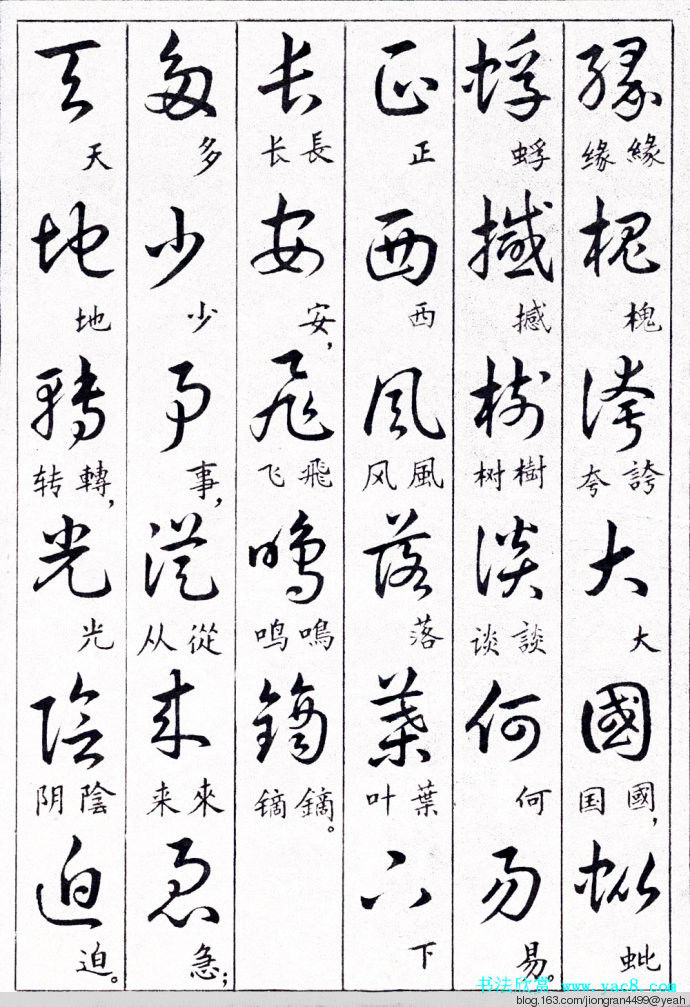 緣 缘緣 槐 槐 誇 夸誇 大 大 國 国國， 蚍 蚍
蜉 蜉 撼 撼 樹 树樹 談 谈談 何 何 易 易。
正 正 西 西 風 风風 落 落 葉 叶葉 下 下
長 长長 安 安， 飛 飞飛 鳴 鸣鳴 鏑 镝鏑。
多 多 少 少 事 事， 從 从從 來 来來 急 急；
天 天 地 地 轉 转轉， 光 光 陰 阴陰 迫 迫。
书法欣赏 www.yac8.com
blog.163.com/jiongran4499@yeah